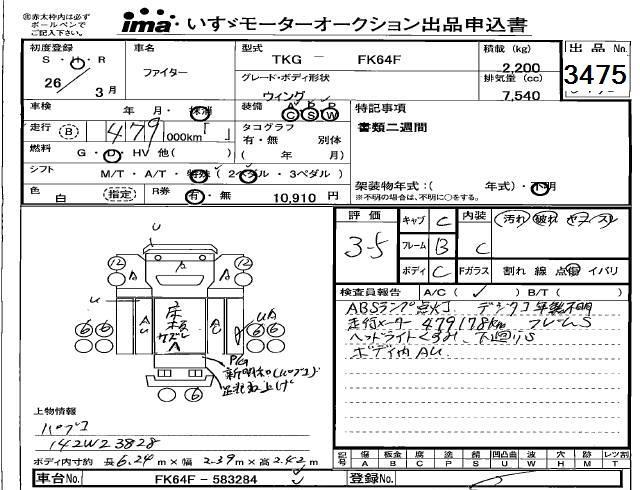 ㊟赤太枠内は必ず
ボールペンで
ご記入下さい。
ima いすゞモーターオークション出品申込書
初度登録
S・H・R
26年 3月
車名
ファイター
型式
TKG － FK64F
グレード・ボディ形状
ウィング
積載 (kg)
2,200
排気量 (cc)
7,540
出品 No.
3475
車検 年 月・抹消
装備 A P P
C S W
特記事項
書類二週間
走行 (B) 479 000km「 」
タコグラフ
有・無 別体
( 年 月)
燃料 G・D・HV 他( )
シフト M/T・A/T・特殊 (2ペダル・3ペダル)
架装物年式：( 年式)・不明
※不明の場合は、不明に○をする。
色 白 (指定) R券 有・無 10,910 円
評価 3-5
キャブ C
フレーム B
ボディ C
内装 C
汚れ 破れ ヤコゲ・スレ
Fガラス 割れ 線 点傷 イバリ
検査員報告 A/C( ✓ ) B/T( )
ABSランプ点灯 デンタコ年製不明
走行メーター 479178km フレームS
ヘッドライトくすみ、下廻りS
ボディ内AU
U
12 A A A 12
u A U
床板
サズレ
A
UA
6 6 6 6
6 6
P/G
新明和(パブコ)
足配取上げ
上物情報
パブコ
142W23828
ボディ内寸約 長 6.24 m × 幅 2.39 m × 高 2.42 m
記号 傷 A 板金 B 腐 C 塗 P 錆 S 凹凸曲 U 波 W 穴 H 跡 M レツ割 T
車台No. FK64F－583284
登録No.